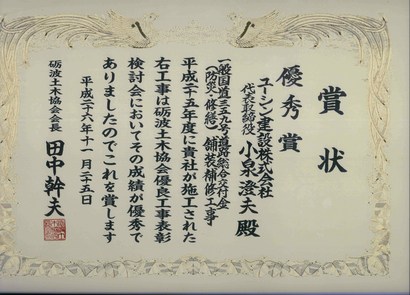 賞状
優秀賞
ユーシン建設株式会社
代表取締役 小泉澄夫 殿
一般国道三五九号道路総合交付金
(防災・修繕)舗装補修工事
平成二十五年度に貴社が施工された
右工事は砺波土木協会優良工事表彰
検討会においてその成績が優秀で
ありましたのでこれを賞します
平成二十六年十一月二十五日
砺波土木協会会長 田中幹夫